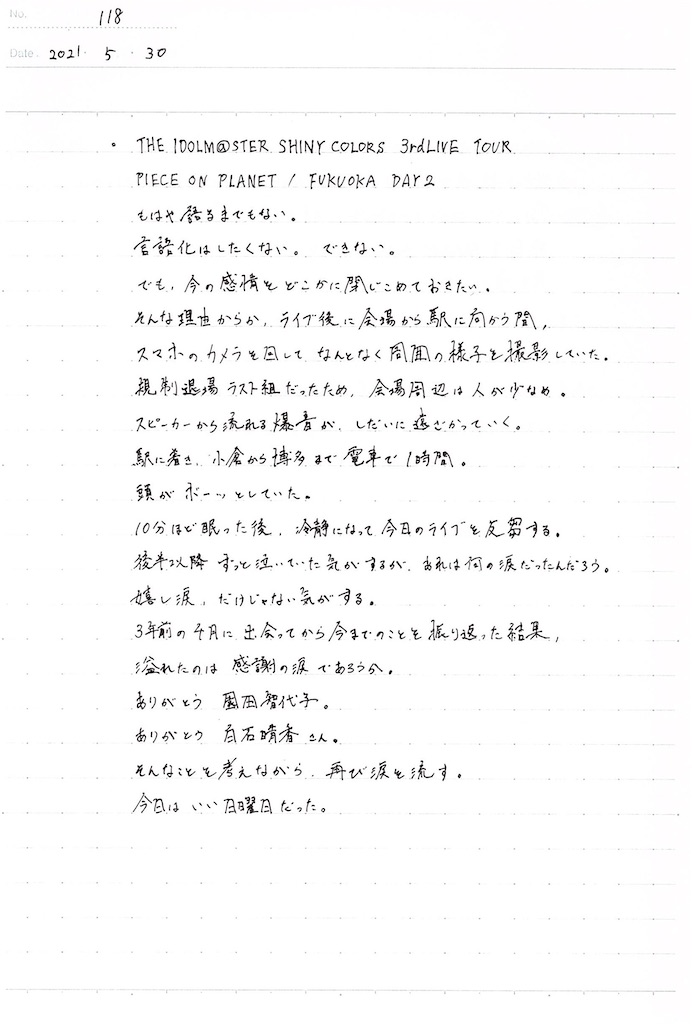 No. 118
Date. 2021 ・ 5 ・ 30
・ THE IDOLM@STER SHINY COLORS 3rdLIVE TOUR
PIECE ON PLANET / FUKUOKA DAY2
もはや語るまでもない。
言語化はしたくない。できない。
でも、今の感情をどこかに閉じこめておきたい。
そんな理由からか、ライブ後に会場から駅に向かう間、
スマホのカメラを回して なんとなく周囲の様子を撮影していた。
規制退場ラスト組だったため、会場周辺は人が少なめ。
スピーカーから流れる爆音が、しだいに遠ざかっていく。
駅に着き、小倉から博多まで電車で1時間。
頭がボーッとしていた。
10分ほど眠った後、冷静になって今日のライブを反芻する。
後半以降ずっと泣いていた気がするが、あれは何の涙だったんだろう。
嬉し涙、だけじゃない気がする。
3年前の4月に出会ってから今までのことを振り返った結果、
溢れたのは 感謝の涙 であろうか。
ありがとう 園田智代子。
ありがとう 白石晴香さん。
そんなことを考えながら、再び涙を流す。
今日は いい日曜日だった。